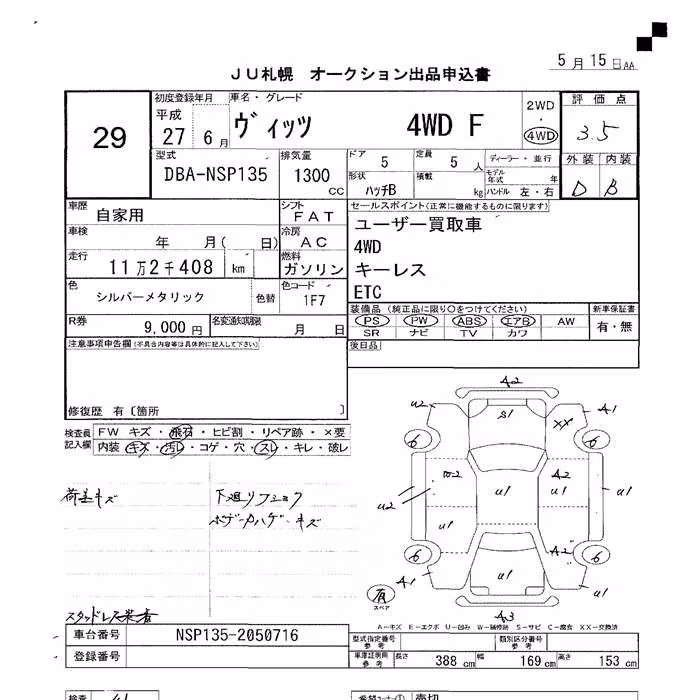 5月15日AA
JU札幌 オークション出品申込書
29
初度登録年月
平成
27 6月
車名・グレード
ヴィッツ 4WD F
2WD
・
4WD
評価点
3.5
外装 内装
D B
型式
DBA-NSP135
排気量
1300
cc
ドア
5
定員
5人
ディーラー・並行
モデル
年式 年
形状
ハッチB
積載
kg
ハンドル 左・右
車歴
自家用
シフト
FAT
車検
年 月( 日)
冷房
AC
走行
11万2千408 km
燃料
ガソリン
色
シルバーメタリック
色替
色コード
1F7
R券
9,000円
名変通知期限
月 日
セールスポイント(正常に機能するものに限ります)
ユーザー買取車
4WD
キーレス
ETC
装備品(純正品に限り○をつけてください)
PS PW ABS エアB AW
SR ナビ TV カワ
新車保証書
有・無
後日品
注意事項申告欄(不具合内容等は具体的に記入して下さい)
修復歴 有〔箇所 〕
検査員
記入欄
FW キズ・飛石・ヒビ割・リペア跡・×要
内装 キズ・汚レ・コゲ・穴・スレ・キレ・破レ
下廻リ
キズ
A2
U2
S1
XX
A1
6
6
U1
A2
U1
U1
U2
U1
A2
6
6
A1
U1
U1
A3
有
スペア
A-キズ E-エクボ U-凹み W-補修跡 S-サビ C-腐食 XX-交換済
車台番号
NSP135-2050716
登録番号
型式指定番号
参考
類別区分番号
参考
車庫証明用
参考
長さ
388 cm
幅
169 cm
高さ
153 cm
検査